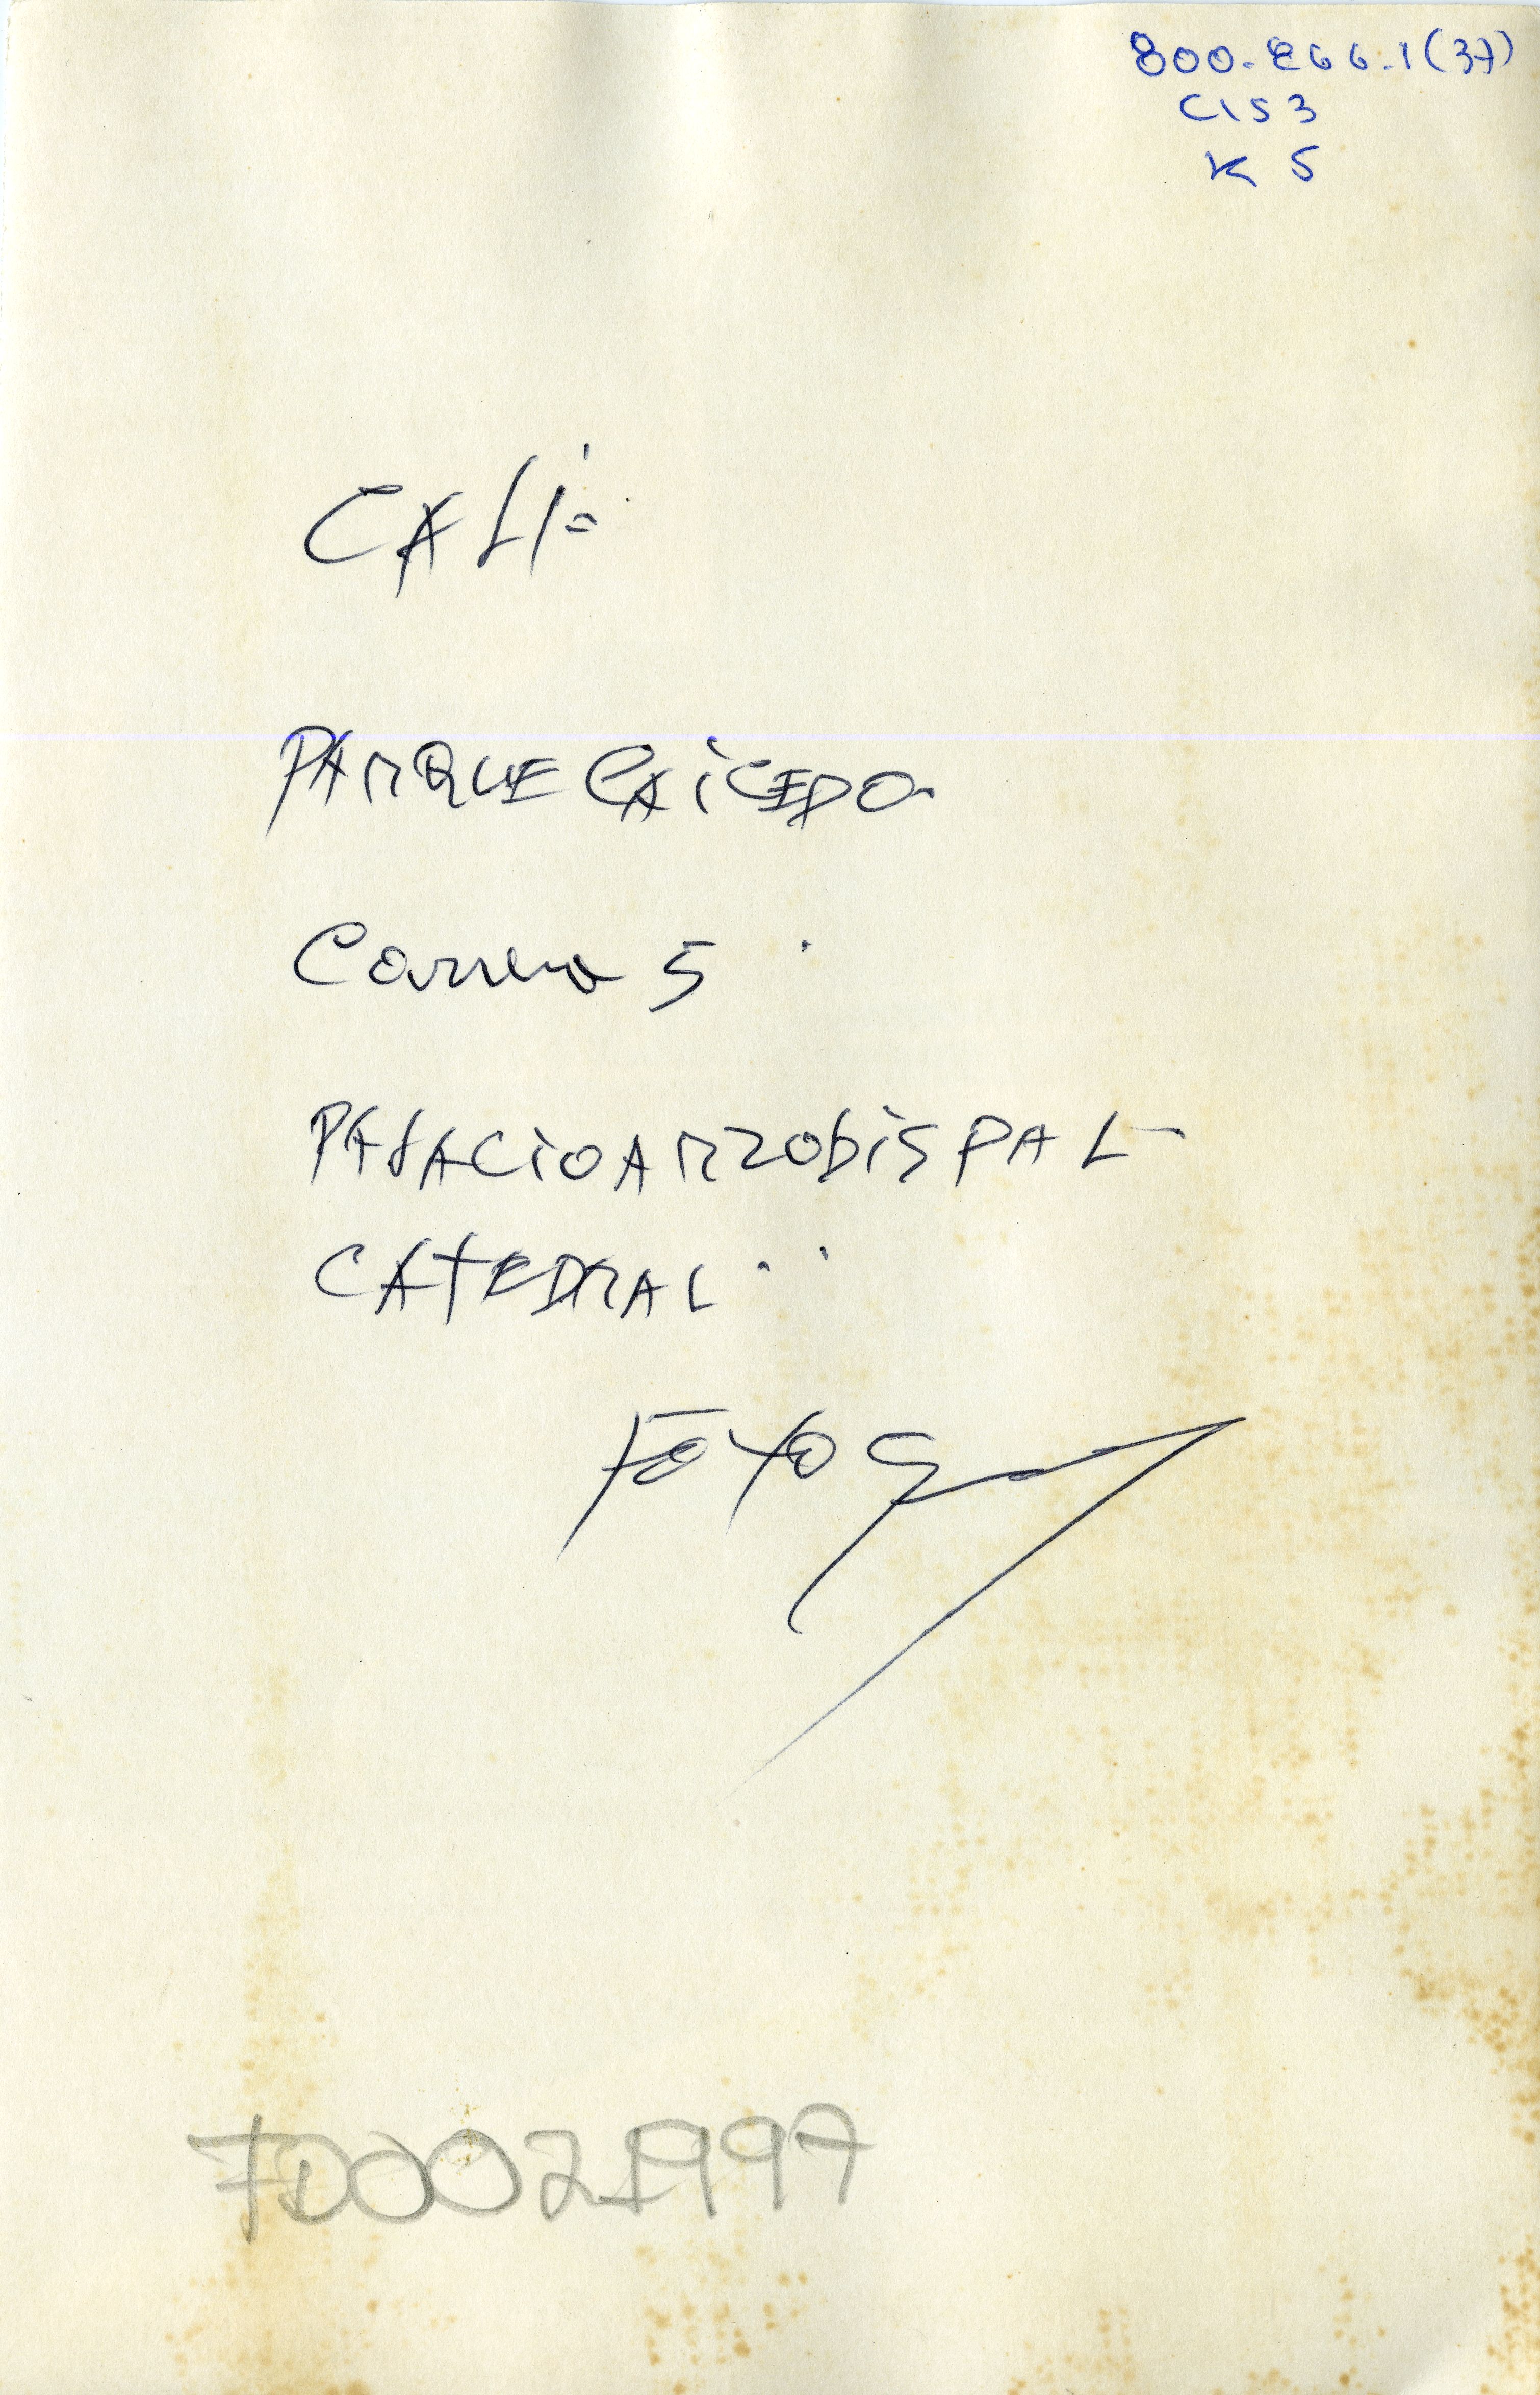 800.866.1(37)
C1S3
K 5
CALi=
PARQUE CAiCEDO
Carrera 5
PALACiO ARZObiSPAL
CATEDRAL
FOTOS
FD0021997